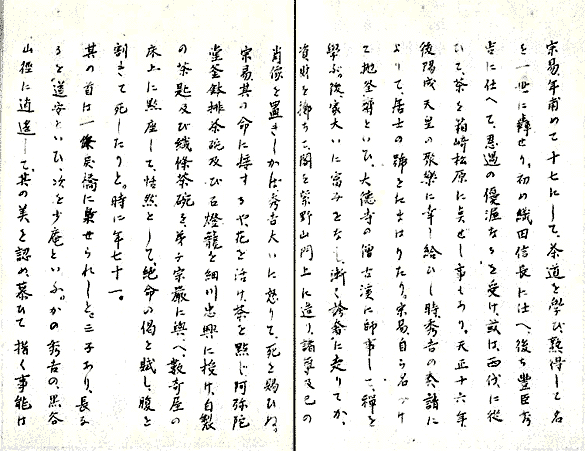 宗易年甫めて十七にして、茶道を學び、熟得して名
を一世に轟せり。初め織田信長に仕へ、後ち豊臣秀
吉に仕へて、恩遇の優渥なるを受け、或は西伐に從
ひて、茶を箱崎松原に煮せし事もあり。天正十六年
後陽成天皇の聚樂に幸し給ひし時、秀吉の奏請に
よりて、居士の號をたまはりたり。宗易自ら名づけ
て抛筌齋といひ、大德寺の僧古溪に師事して、禪を
學ぶ。後、家大いに富みをなし、漸く誇奢に走りてか、
資財を擲ちて、閣を紫野山門上に造り、諸
肖像を置きしかば、秀吉大いに怒りて、死を賜ひぬ。
宗易其の命に接するや、花を活け、茶を點じ、阿弥陀
堂釜、鉢、茶碗及び石燈籠を細川忠興に授け、自製
の茶匙及び織條茶碗を、弟子宗嚴に與へ、數奇屋の
床上に默座して、恬然として、絶命の偈を賦し、腹を
割きて死したりと。時に年七十一。
其の首は一條戻橋に梟せられしと。二子あり、長な
るを道安といひ、次を少庵といふ。かの秀吉の、黒谷
山徑に逍遥して、其の美を認め、慕ひて措く事能は